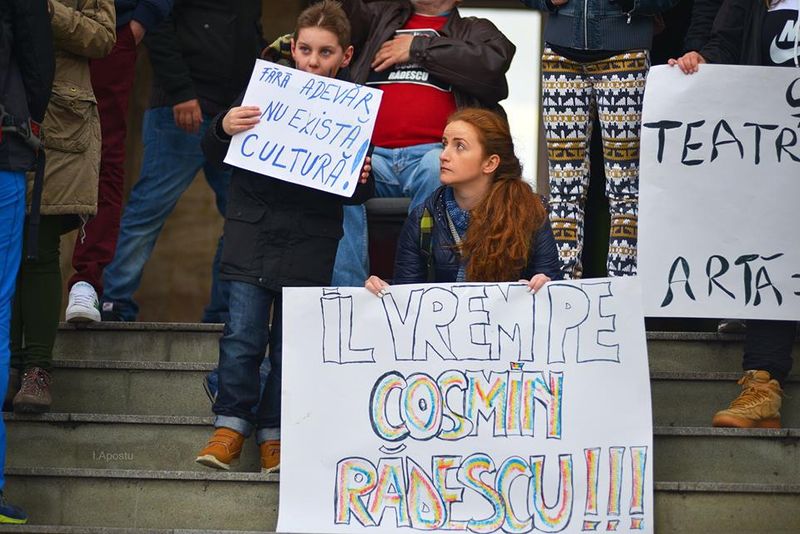 FĂRĂ ADEVĂR
NU EXISTĂ
CULTURĂ!
RĂDESCU
TEATR
ARTĂ=
ÎL VREM PE
COSMIN
RĂDESCU!!!
I.Apostu